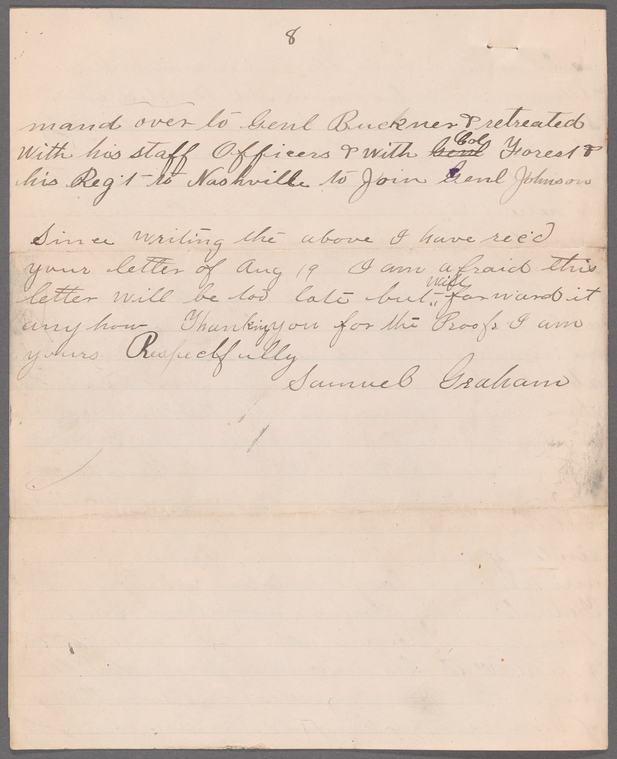 8
mand over to Genl Buckner & retreated
With his staff Officers & With Genl Col Forest &
his Reg't to Nashville to Join Genl Johnson
Since writing the above I have rec'd
your letter of Aug 19 I am afraid this
letter will be too late but will forward it
any how Thanking you for the Proofs I am
yours Respectfully
Samuel Graham